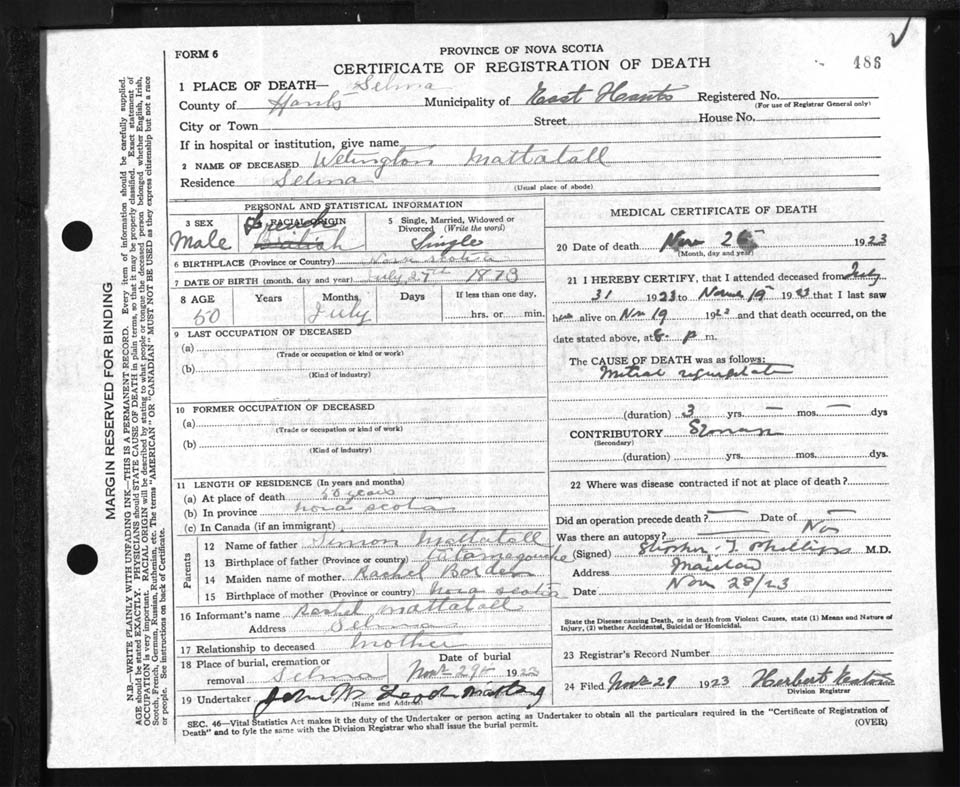 FORM 6
PROVINCE OF NOVA SCOTIA
CERTIFICATE OF REGISTRATION OF DEATH
486
MARGIN RESERVED FOR BINDING
N.B.—WRITE PLAINLY WITH UNFADING INK—THIS IS A PERMANENT RECORD. Every item of information should be carefully supplied.
AGE should be stated EXACTLY. PHYSICIANS should STATE CAUSE OF DEATH in plain terms, so that it may be properly classified. Exact statement of
OCCUPATION is very important. RACIAL ORIGIN will be described by stating to what people or tongue the deceased person belonged whether English, Irish,
Scotch, French, German, Russian, Ruthenian, etc. The terms "AMERICAN" OR "CANADIAN" MUST NOT BE USED as they express citizenship but not a race
or people. See instructions on back of Certificate.
1 PLACE OF DEATH— Selma
County of Hants Municipality of East Hants Registered No.
(For use of Registrar General only)
City or Town Street House No.
If in hospital or institution, give name
2 NAME OF DECEASED Welington Mattatall
Residence Selma
(Usual place of abode)
PERSONAL AND STATISTICAL INFORMATION
3 SEX Male
RACIAL ORIGIN French British
5 Single, Married, Widowed or
Divorced (Write the word)
Single
6 BIRTHPLACE (Province or Country) Nova Scotia
7 DATE OF BIRTH (month, day and year) July 27th 1873
8 AGE Years Months Days If less than one day,
50 July hrs. or min.
9 LAST OCCUPATION OF DECEASED
(a)
(Trade or occupation or kind or work)
(b)
(Kind of industry)
10 FORMER OCCUPATION OF DECEASED
(a)
(Trade or occupation or kind of work)
(b)
(Kind of industry)
11 LENGTH OF RESIDENCE (In years and months)
(a) At place of death 50 years
(b) In province Nova Scotia
(c) In Canada (if an immigrant)
Parents
12 Name of father Simon Mattatall
13 Birthplace of father (Province or country) Tatamagouche
14 Maiden name of mother Rachel Borden
15 Birthplace of mother (Province or country) Nova Scotia
16 Informant's name Rachel Mattatall
Address Selma
17 Relationship to deceased Mother
18 Place of burial, cremation or
removal Selma
Date of burial
Nov 29th 1923
19 Undertaker John W
(Name and Address)
MEDICAL CERTIFICATE OF DEATH
20 Date of death Nov 26 1923
(Month, day and year)
21 I HEREBY CERTIFY, that I attended deceased from July
31 1923 to Nov 19 1923 that I last saw
him alive on Nov 19 1923 and that death occurred, on the
date stated above, at 8 p m.
The CAUSE OF DEATH was as follows:
Mitral regurgitation
(duration) 3 yrs. — mos. — dys
CONTRIBUTORY
(Secondary)
(duration) yrs. mos. dys.
22 Where was disease contracted if not at place of death?
Did an operation precede death? — Date of —
Was there an autopsy? No
(Signed) T. Phillips M.D.
Address Maitland
Date Nov 28/23
State the Disease causing Death, or in death from Violent Causes, state (1) Means and Nature of
Injury, (2) whether Accidental, Suicidal or Homicidal.
23 Registrar's Record Number
24 Filed Nov 29 1923 Herbert
Division Registrar
SEC. 46—Vital Statistics Act makes it the duty of the Undertaker or person acting as Undertaker to obtain all the particulars required in the "Certificate of Registration of
Death" and to fyle the same with the Division Registrar who shall issue the burial permit.
(OVER)